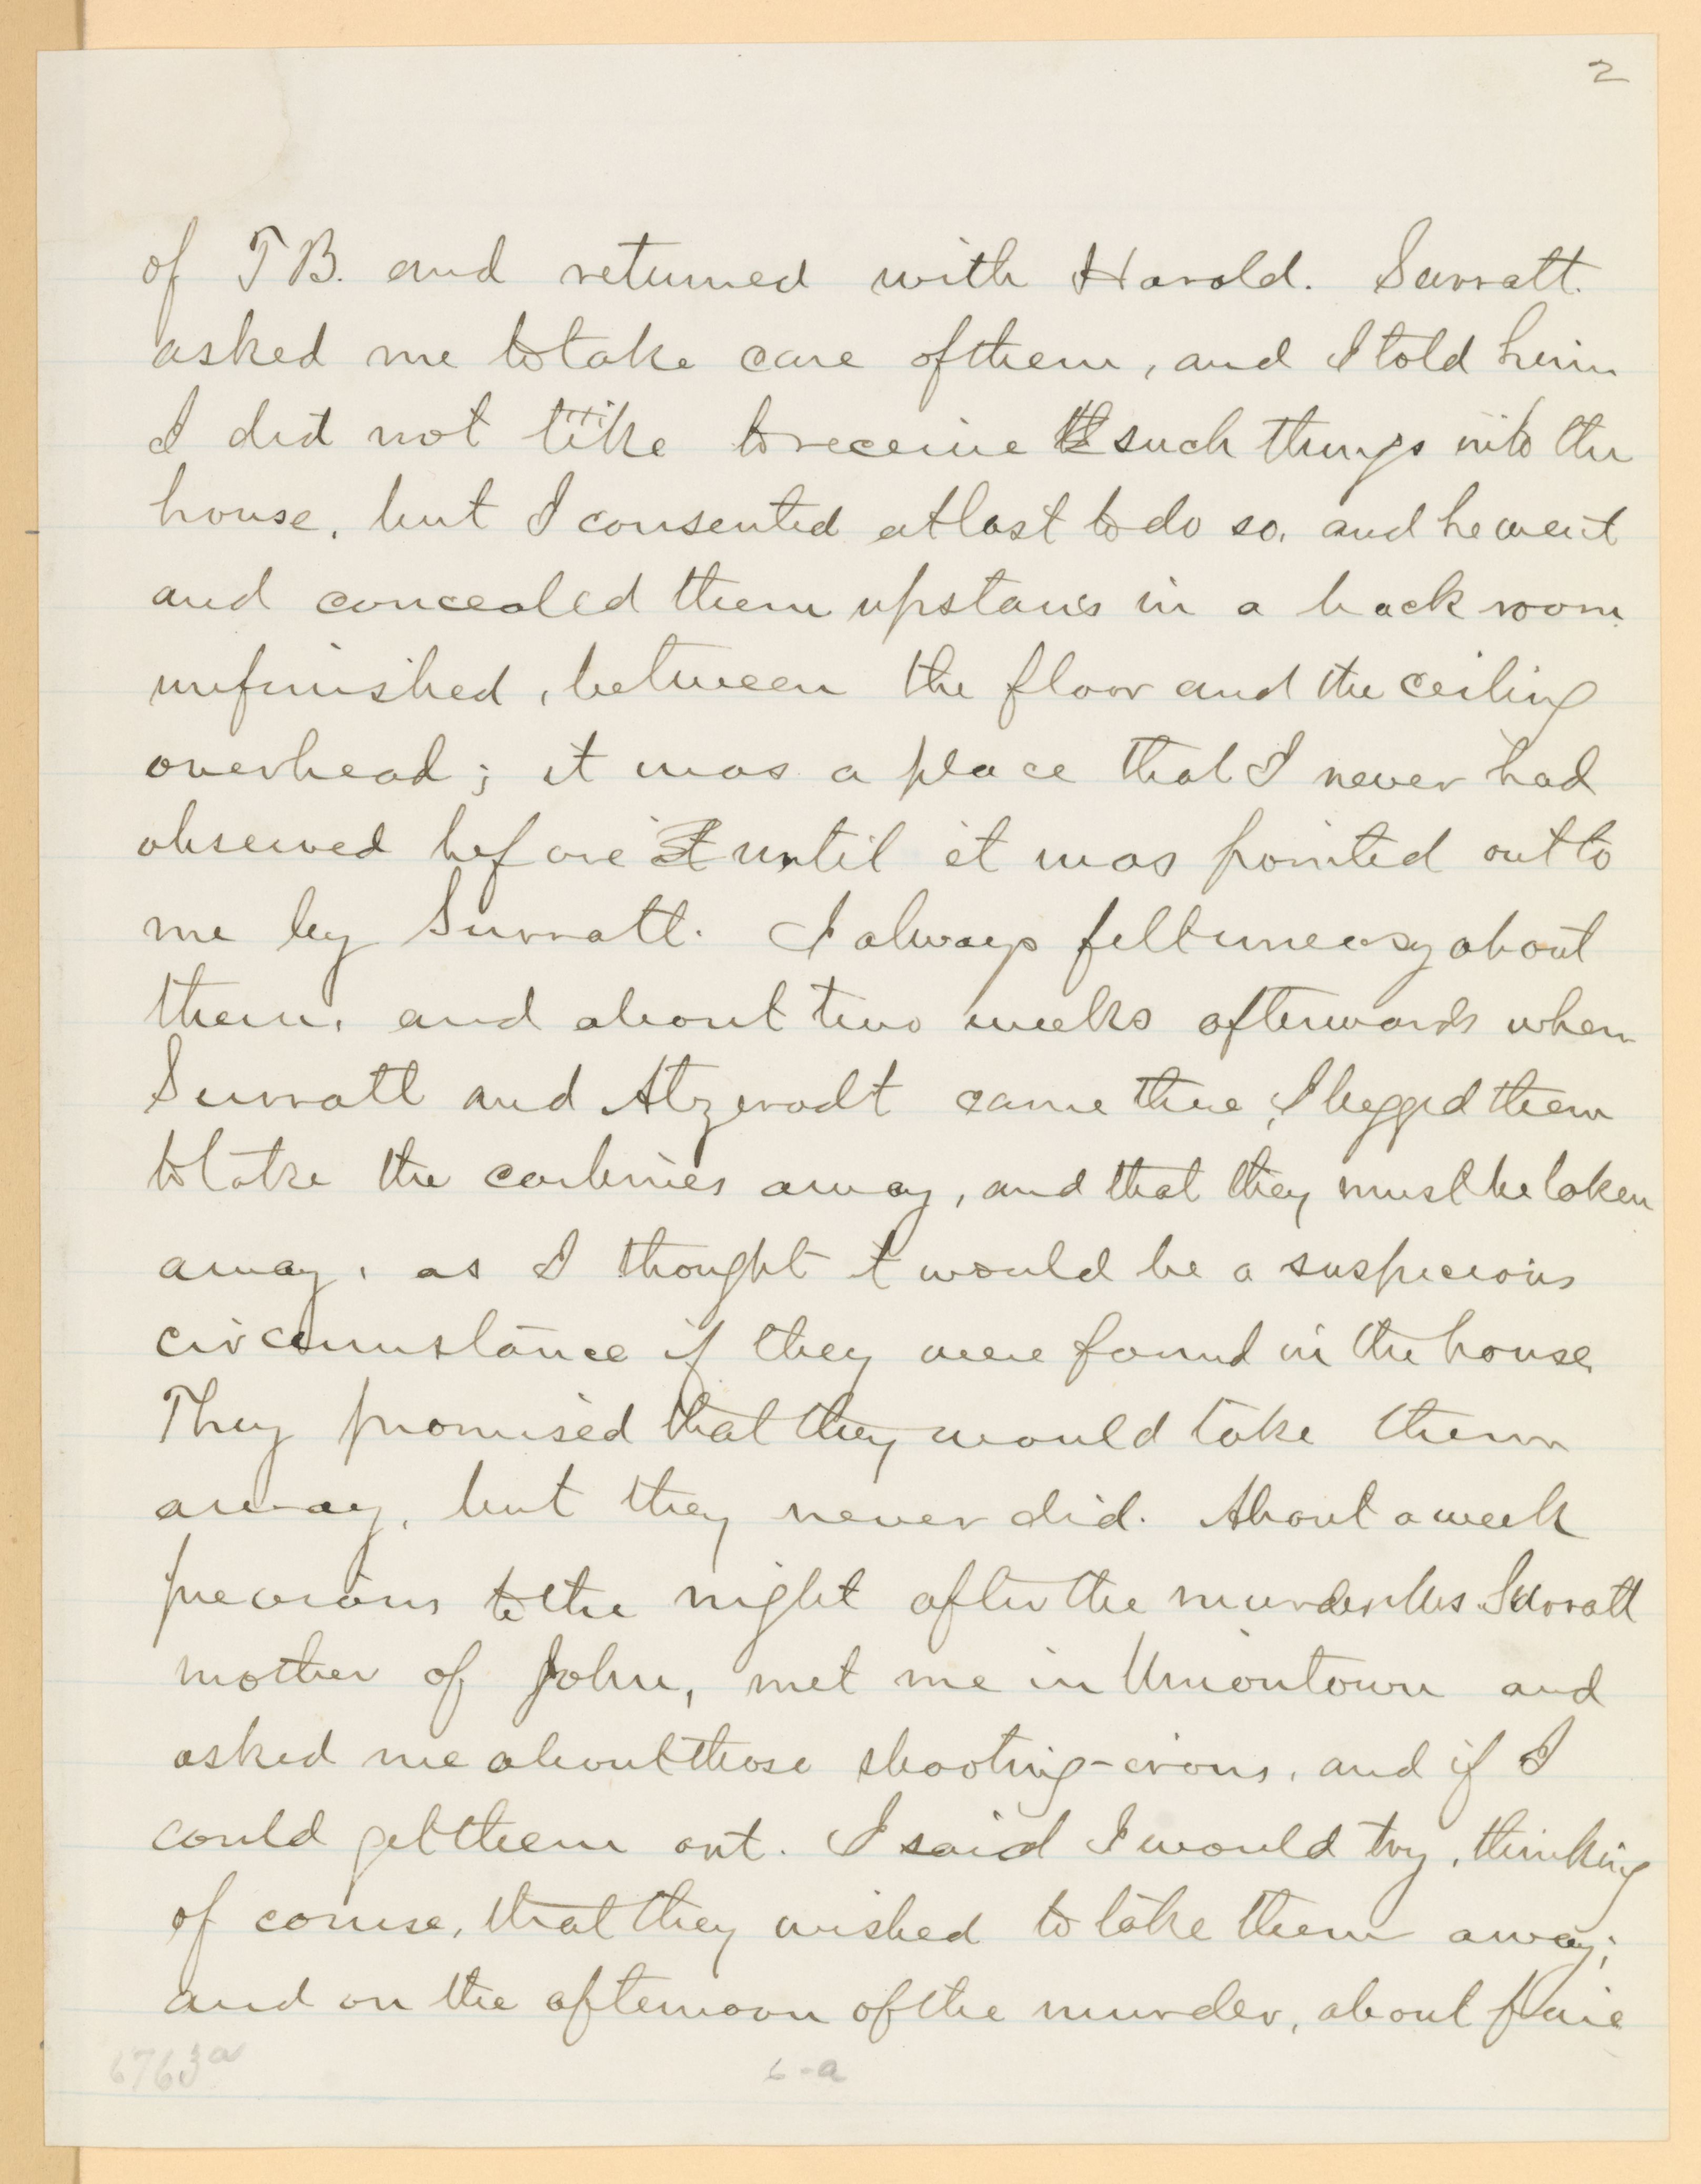 2
of T B. and returned with Harold. Surratt.
asked me to take care of them, and I told him
I did not like to receive such things into the
house, but I consented at last to do so, and he went
and concealed them upstairs in a back room
unfinished, between the floor and the ceiling
overhead; it was a place that I never had
observed before until it was pointed out to
me by Surratt. I always felt uneasy about
them, and about two weeks afterwards when
Surratt and Atzerodt came there, I begged them
to take the carbines away, and that they must be taken
away, as I thought it would be a suspicious
circumstance if they were found in the house
They promised that they would take them
away, but they never did. About a week
previous to the night after the murder Mrs Surratt
mother of John, met me in Uniontown and
asked me about those shooting-irons, and if I
could get them out. I said I would try, thinking
of course, that they wished to take them away;
and on the afternoon of the murder, about five
6763a